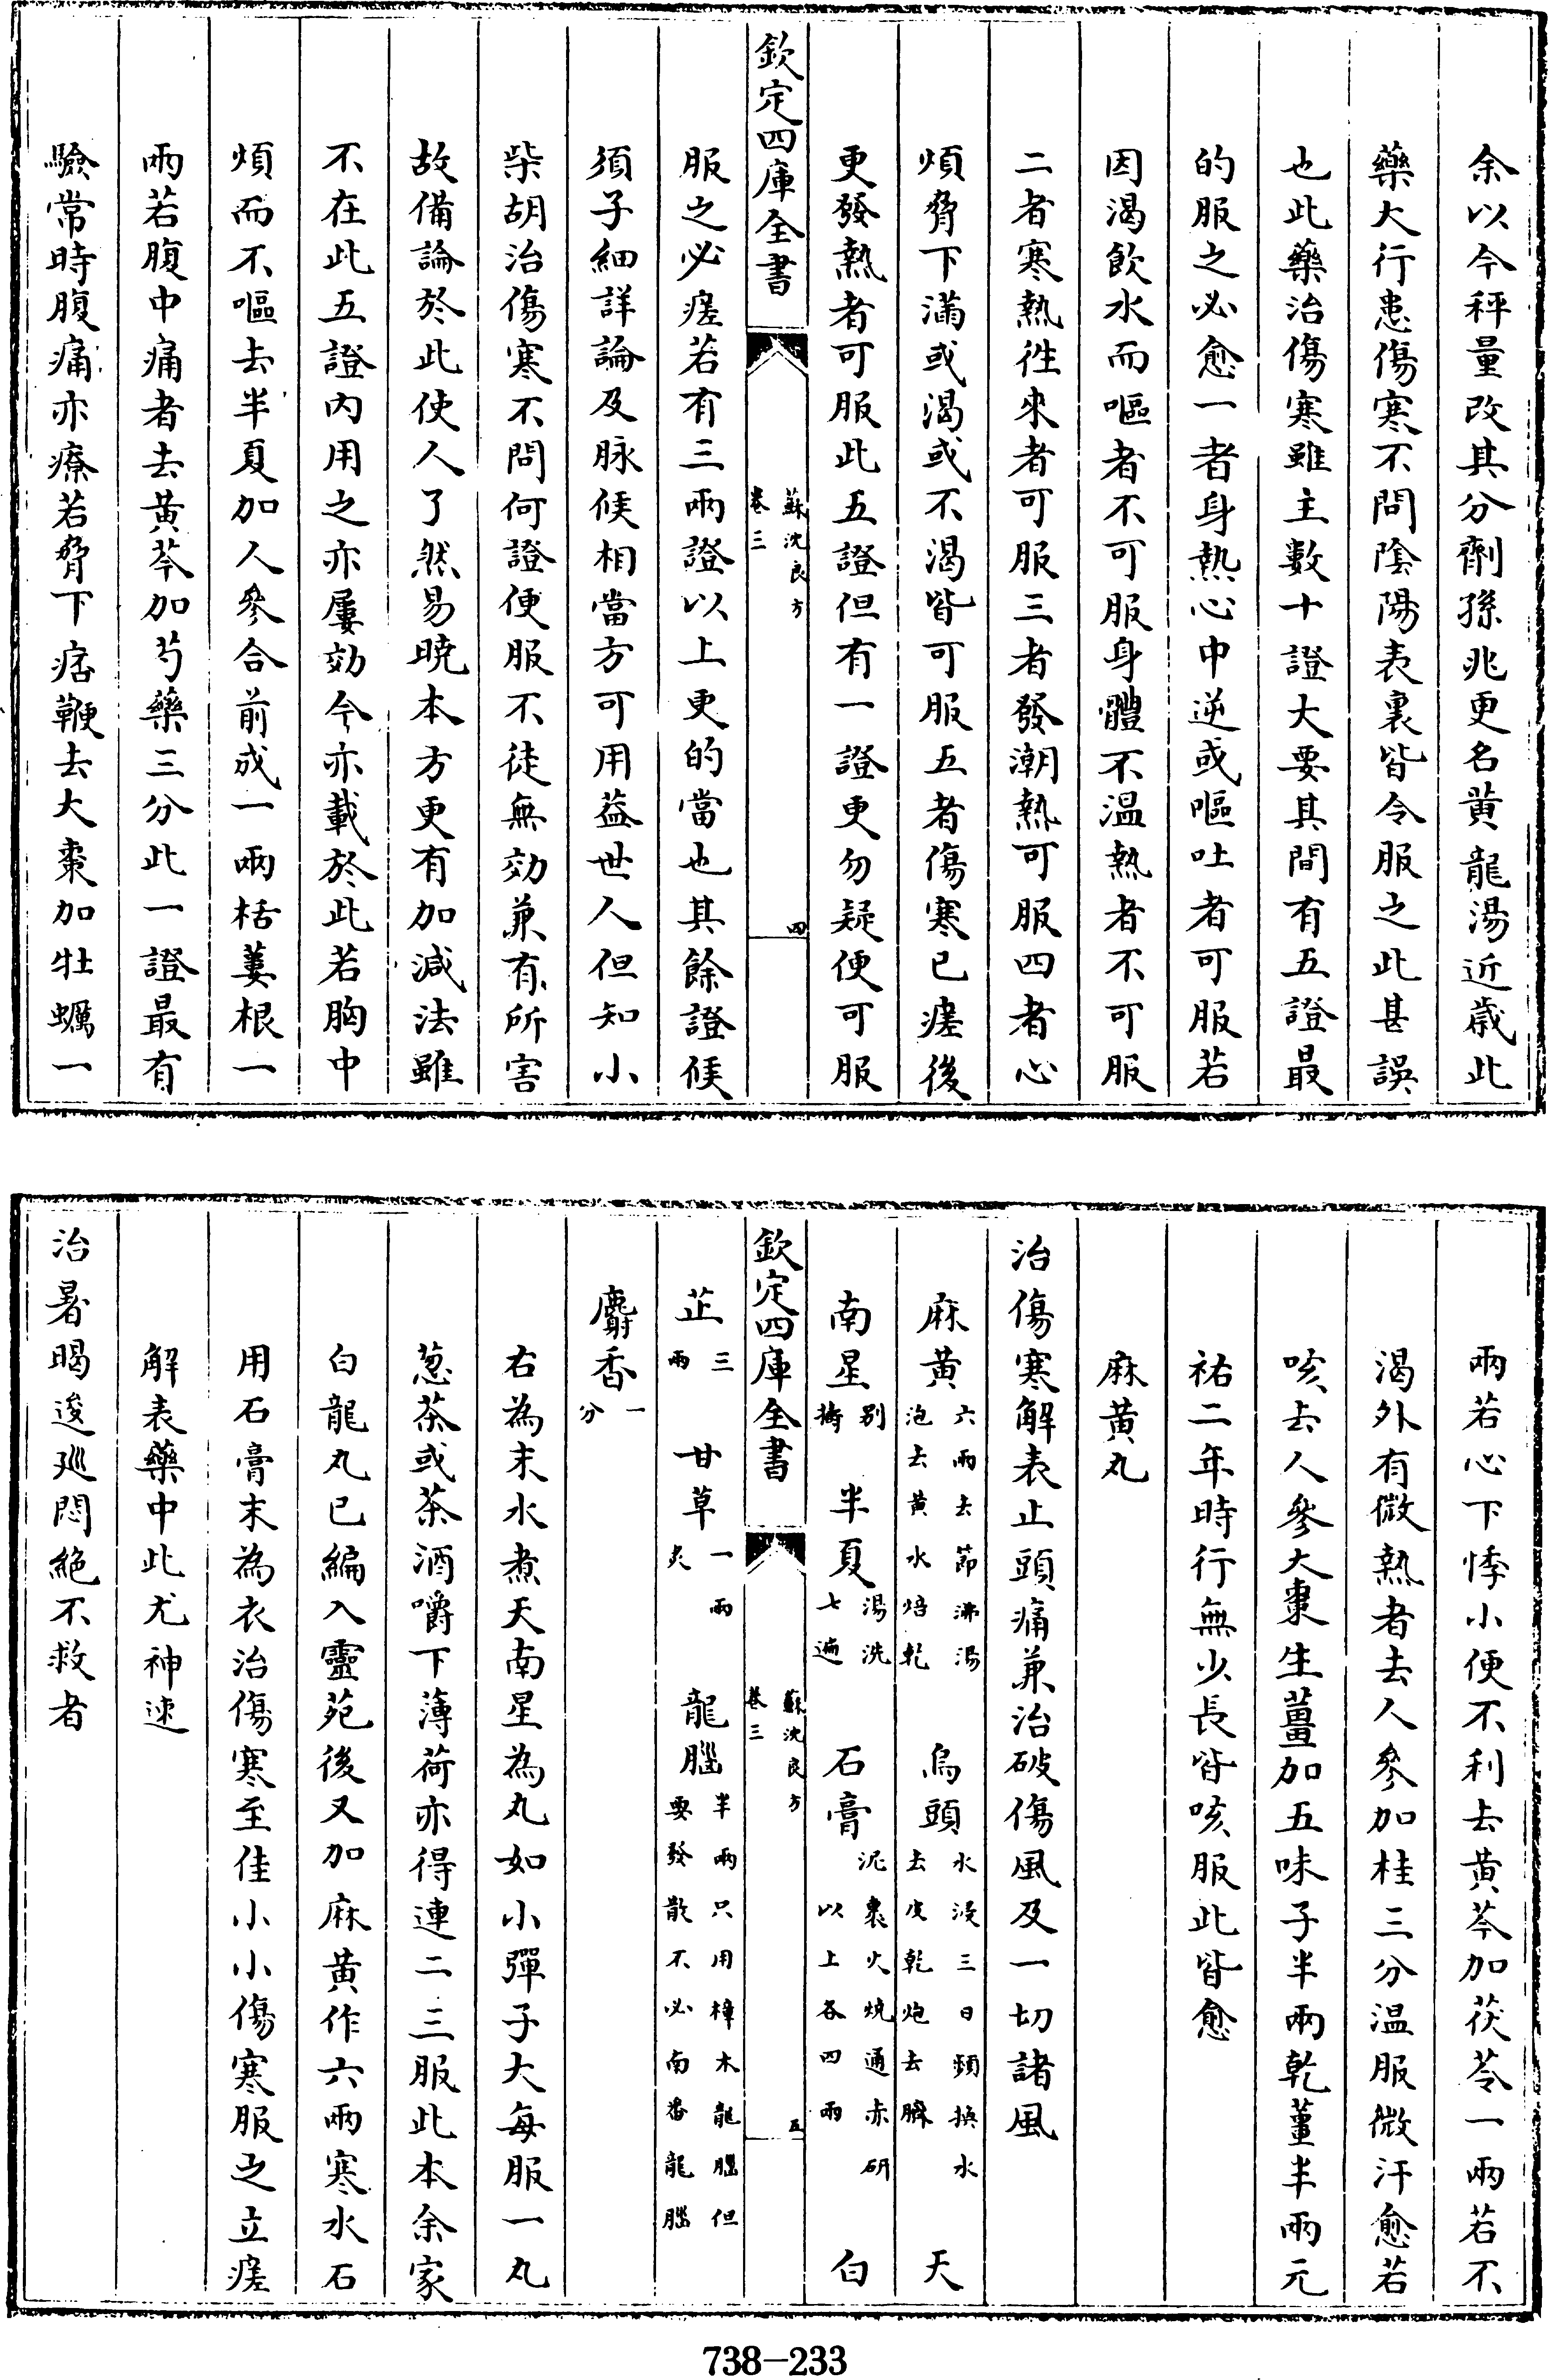 余以今秤量改其分劑孫兆更名黄龍湯近歲此
藥大行患傷寒不問陰陽表裏皆令服之此甚誤
也此藥治傷寒雖主數十證大要其間有五證最
的服之必愈一者身熱心中逆或嘔吐者可服若
因渴飲水而嘔者不可服身體不温熱者不可服
二者寒熱徃來者可服三者發潮熱可服四者心
煩脅下滿或渴或不渴皆可服五者傷寒已瘥後
更發熱者可服此五證但有一證更勿疑便可服
欽定四庫全書
蘇沈良方
卷三
四
服之必瘥若有三兩證以上更的當也其餘證候
須子細詳論及脉候相當方可用葢世人但知小
柴胡治傷寒不問何證便服不徒無効兼有所害
故備論於此使人了然易曉本方更有加減法雖
不在此五證内用之亦屢効今亦載於此若胸中
煩而不嘔去半夏加人參合前成一兩栝蔞根一
兩若腹中痛者去黄芩加芍藥三分此一證最有
驗常時腹痛亦療若脅下痞鞕去大棗加牡蠣一
兩若心下悸小便不利去黄芩加茯苓一兩若不
渴外有微熱者去人參加桂三分温服微汗愈若
咳去人參大棗生薑加五味子半兩乾薑半兩元
祐二年時行無少長皆咳服此皆愈
麻黄丸
治傷寒解表止頭痛兼治破傷風及一切諸風
麻黄六兩去節沸湯泡去黄水焙乾 烏頭水浸三日頻換水去皮乾炮去臍 天
南星别擣 半夏湯洗七遍 石膏泥裹火燒通赤研以上各四兩 白
欽定四庫全書
蘇沈良方
卷三
五
芷三兩 甘草一兩炙 龍腦半兩只用樟木龍腦但要發散不必南番龍腦
麝香一分
右為末水煮天南星為丸如小彈子大每服一丸
葱茶或茶酒嚼下薄荷亦得連二三服此本余家
白龍丸已編入靈苑後又加麻黄作六兩寒水石
用石膏末為衣治傷寒至佳小小傷寒服之立瘥
解表藥中此尤神速
治暑暍逡廵悶絶不救者
738-233